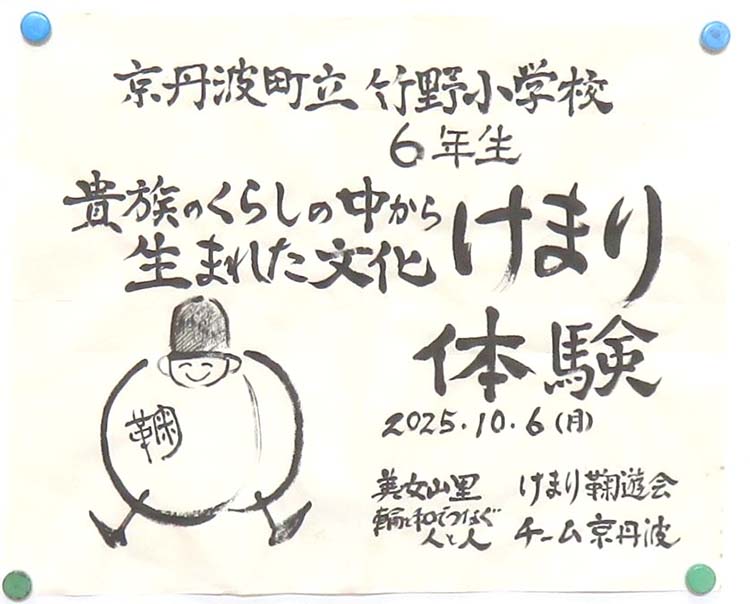 京丹波町立 竹野小学校
6年生
貴族のくらしの中から
生まれた文化
けまり
体験
2025.10.6(月)
鞠
美女山里
輪と和でつなぐ
人と人
けまり鞠遊会
チーム京丹波